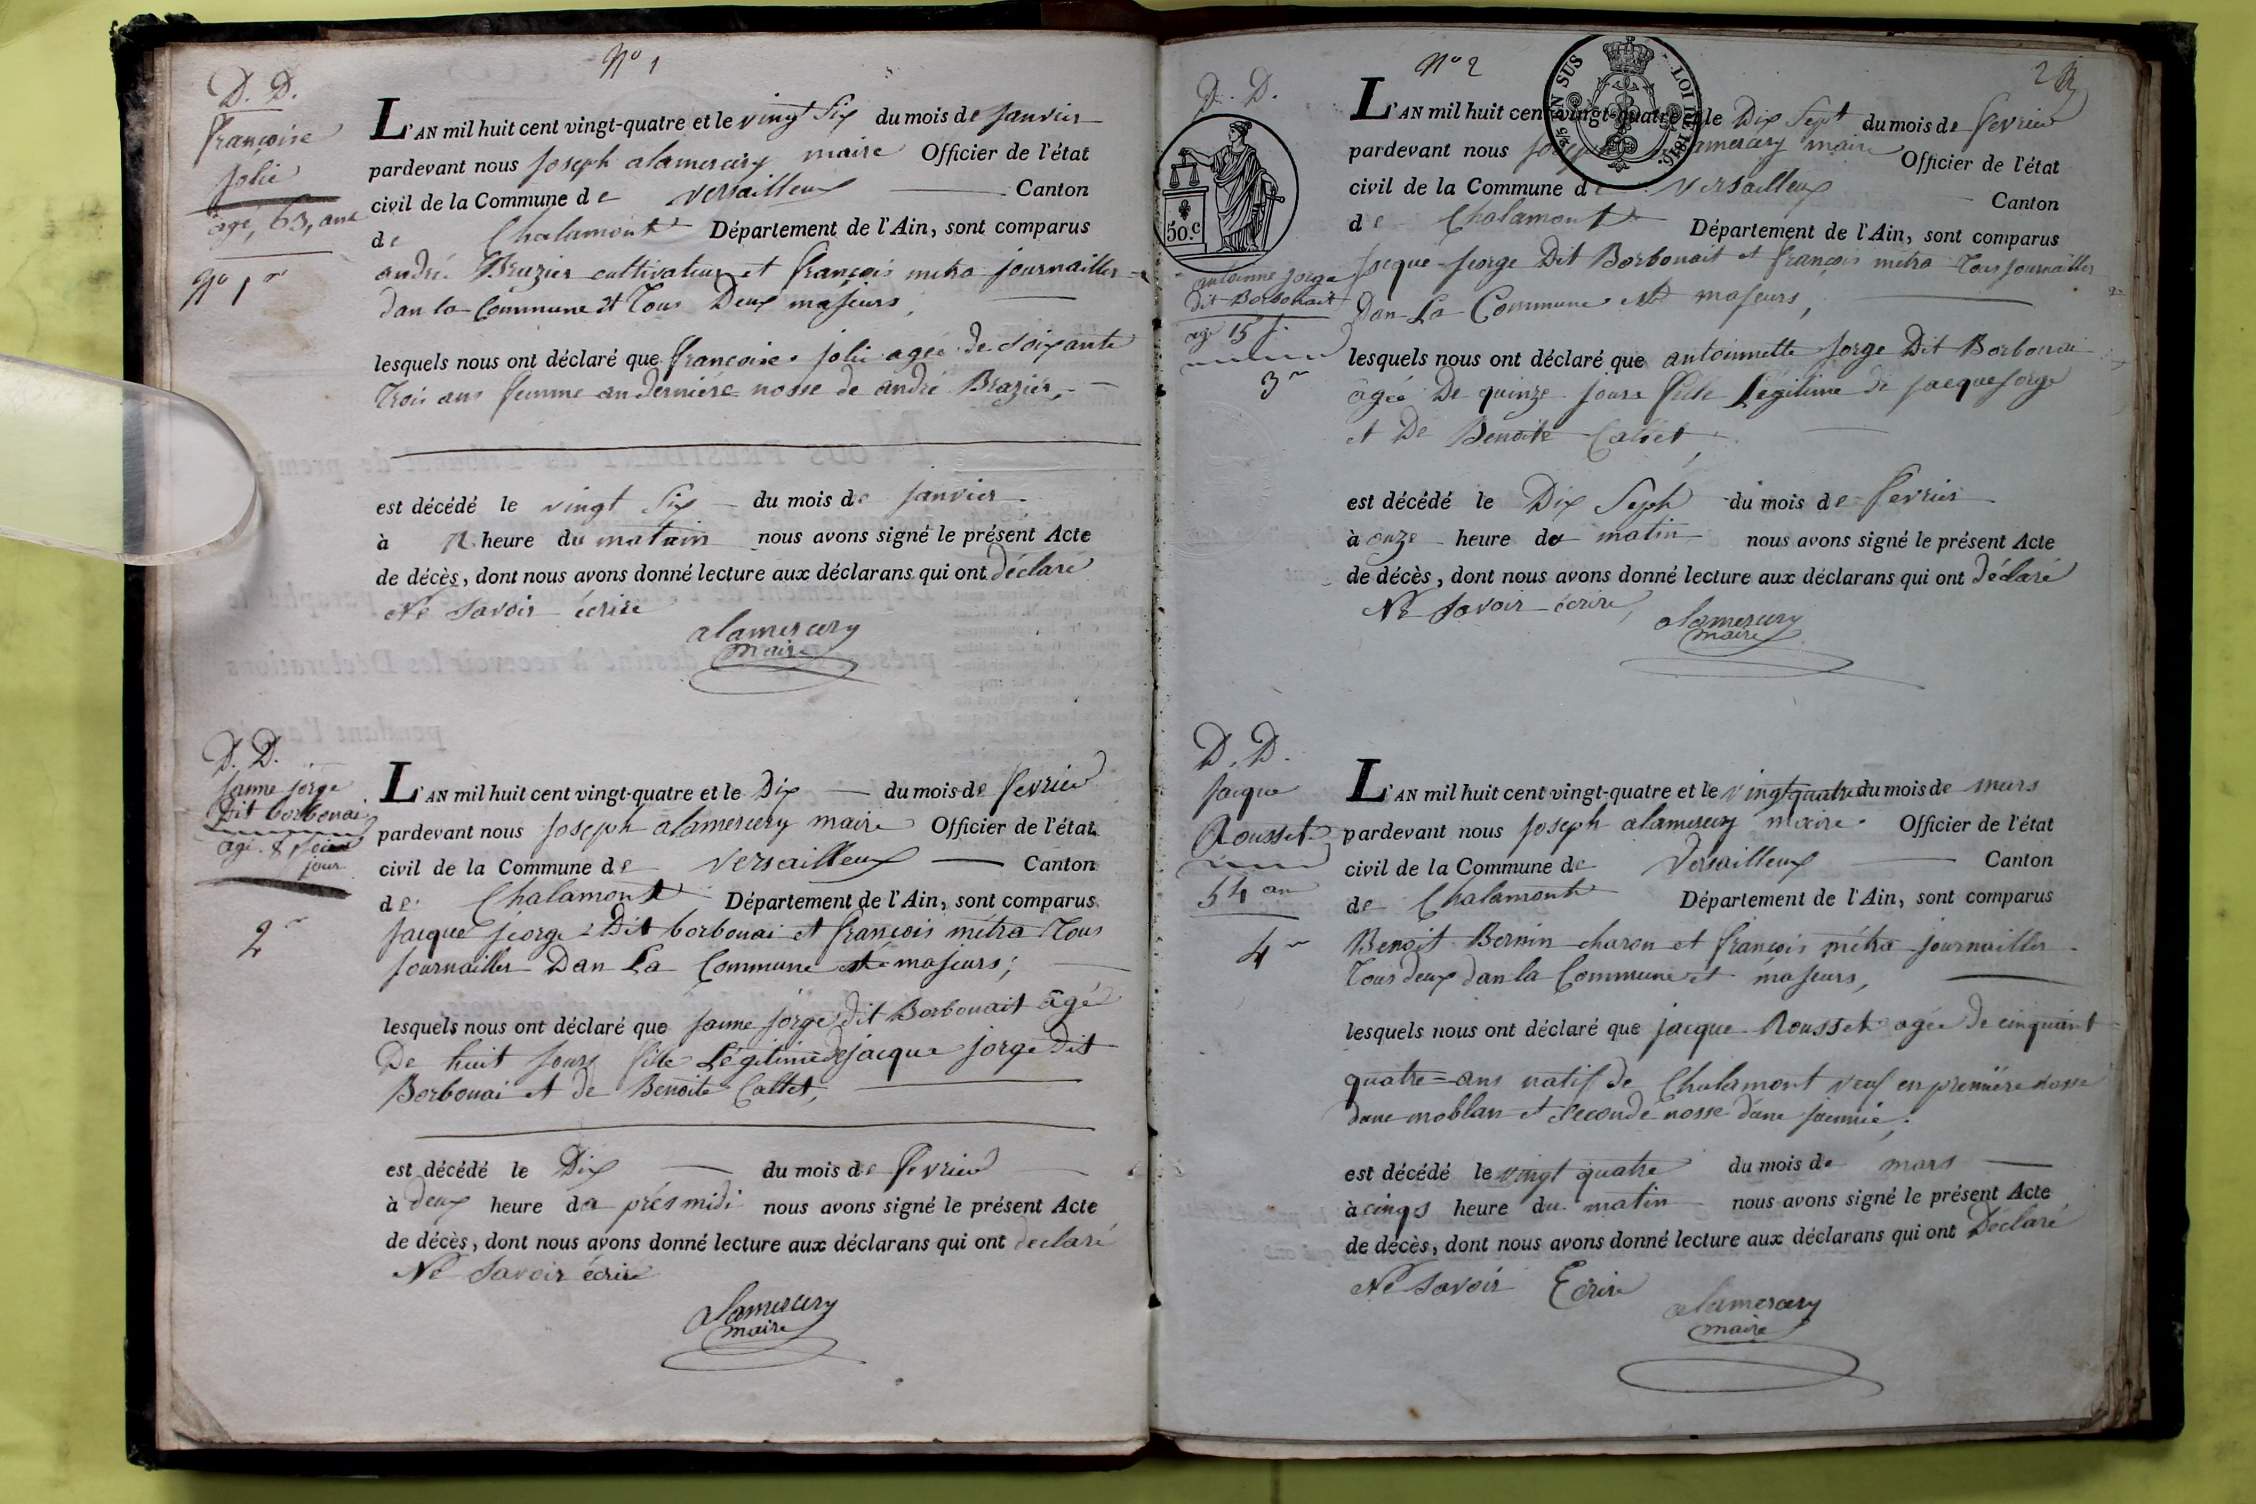 N° 1
D. D.
françoise
jolie
âgé, 63, ans
N° 1er
L'AN mil huit cent vingt-quatre et le vingt Six du mois de janvier
pardevant nous joseph alamercery maire Officier de l'état
civil de la Commune de Versailleux Canton
de Chalamont Département de l'Ain, sont comparus
andré Brazier cultivateur et françois métra journailler
dan la Commune et Tous Deux majeurs,
lesquels nous ont déclaré que françoise jolie agée de soixante
Trois ans femme en derniére nosse de andré Brazier,
est décédé le vingt Six du mois de janvier
à heure du matain nous avons signé le présent Acte
de décès, dont nous avons donné lecture aux déclarans qui ont déclaré
Ne Savoir écrire
alamercery
maire
D. D.
janne jorge
Dit borbonai
agé 8
jour
2
L'AN mil huit cent vingt-quatre et le Dix du mois de fevrier
pardevant nous joseph alamercery maire Officier de l'état
civil de la Commune de Versailleux Canton
de Chalamont Département de l'Ain, sont comparus
jacque jeorge Dit borbonai et françois métra Tous
journailler Dan La Commune et majeurs;
lesquels nous ont déclaré que janne jorge dit Borbonait âgé
De huit jours fille Légitime de jacque jorge Dit
Borbonai et de Benoite Caltet,
est décédé le Dix du mois de fevrier
à deux heure da présmidi nous avons signé le présent Acte
de décès, dont nous avons donné lecture aux déclarans qui ont declaré
Ne Savoir écrire
alamercery
maire
N° 2
2
2/5 EN SUS
LOI DE 1816.
D. D.
50.c
antoinne jorge
dit Borbonait
age 15 j.
3
L'AN mil huit cent vingt-quatre et le Dix Sept du mois de fevrier
pardevant nous joseph alamercery maire Officier de l'état
civil de la Commune de Versailleux Canton
de Chalamont Département de l'Ain, sont comparus
jacque jeorge Dit Borbonait et françois métra Tous journailler
Dan La Commune et majeurs,
lesquels nous ont déclaré que antoinnette jorge Dit Borbonai
âgée De quinze jours fille Légitime de jacque jorge
et De Benoite Caltet,
est décédé le Dix Seph du mois de fevrier
à onze heure du matin nous avons signé le présent Acte
de décès, dont nous avons donné lecture aux déclarans qui ont déclaré
Ne Savoir écrire,
alamercery
maire
D. D.
jacque
Rousset
54 an
4
L'AN mil huit cent vingt-quatre et le vingt quatre du mois de mars
pardevant nous joseph alamercery maire Officier de l'état
civil de la Commune de Versailleux Canton
de Chalamont Département de l'Ain, sont comparus
Benoit Bernin charon et françois métra journailler
Tous deux dan la Commune et majeurs,
lesquels nous ont déclaré que jacque Rousset agée de cinquant
quatre ans natif de Chalamont veuf en premiére nosse
dane moblan et seconde nosse dane jaennie,
est décédé le vingt quatre du mois de mars
à cinqs heure du matin nous avons signé le présent Acte
de décès, dont nous avons donné lecture aux déclarans qui ont Déclaré
Ne Savoir Ecrire
alamercery
maire